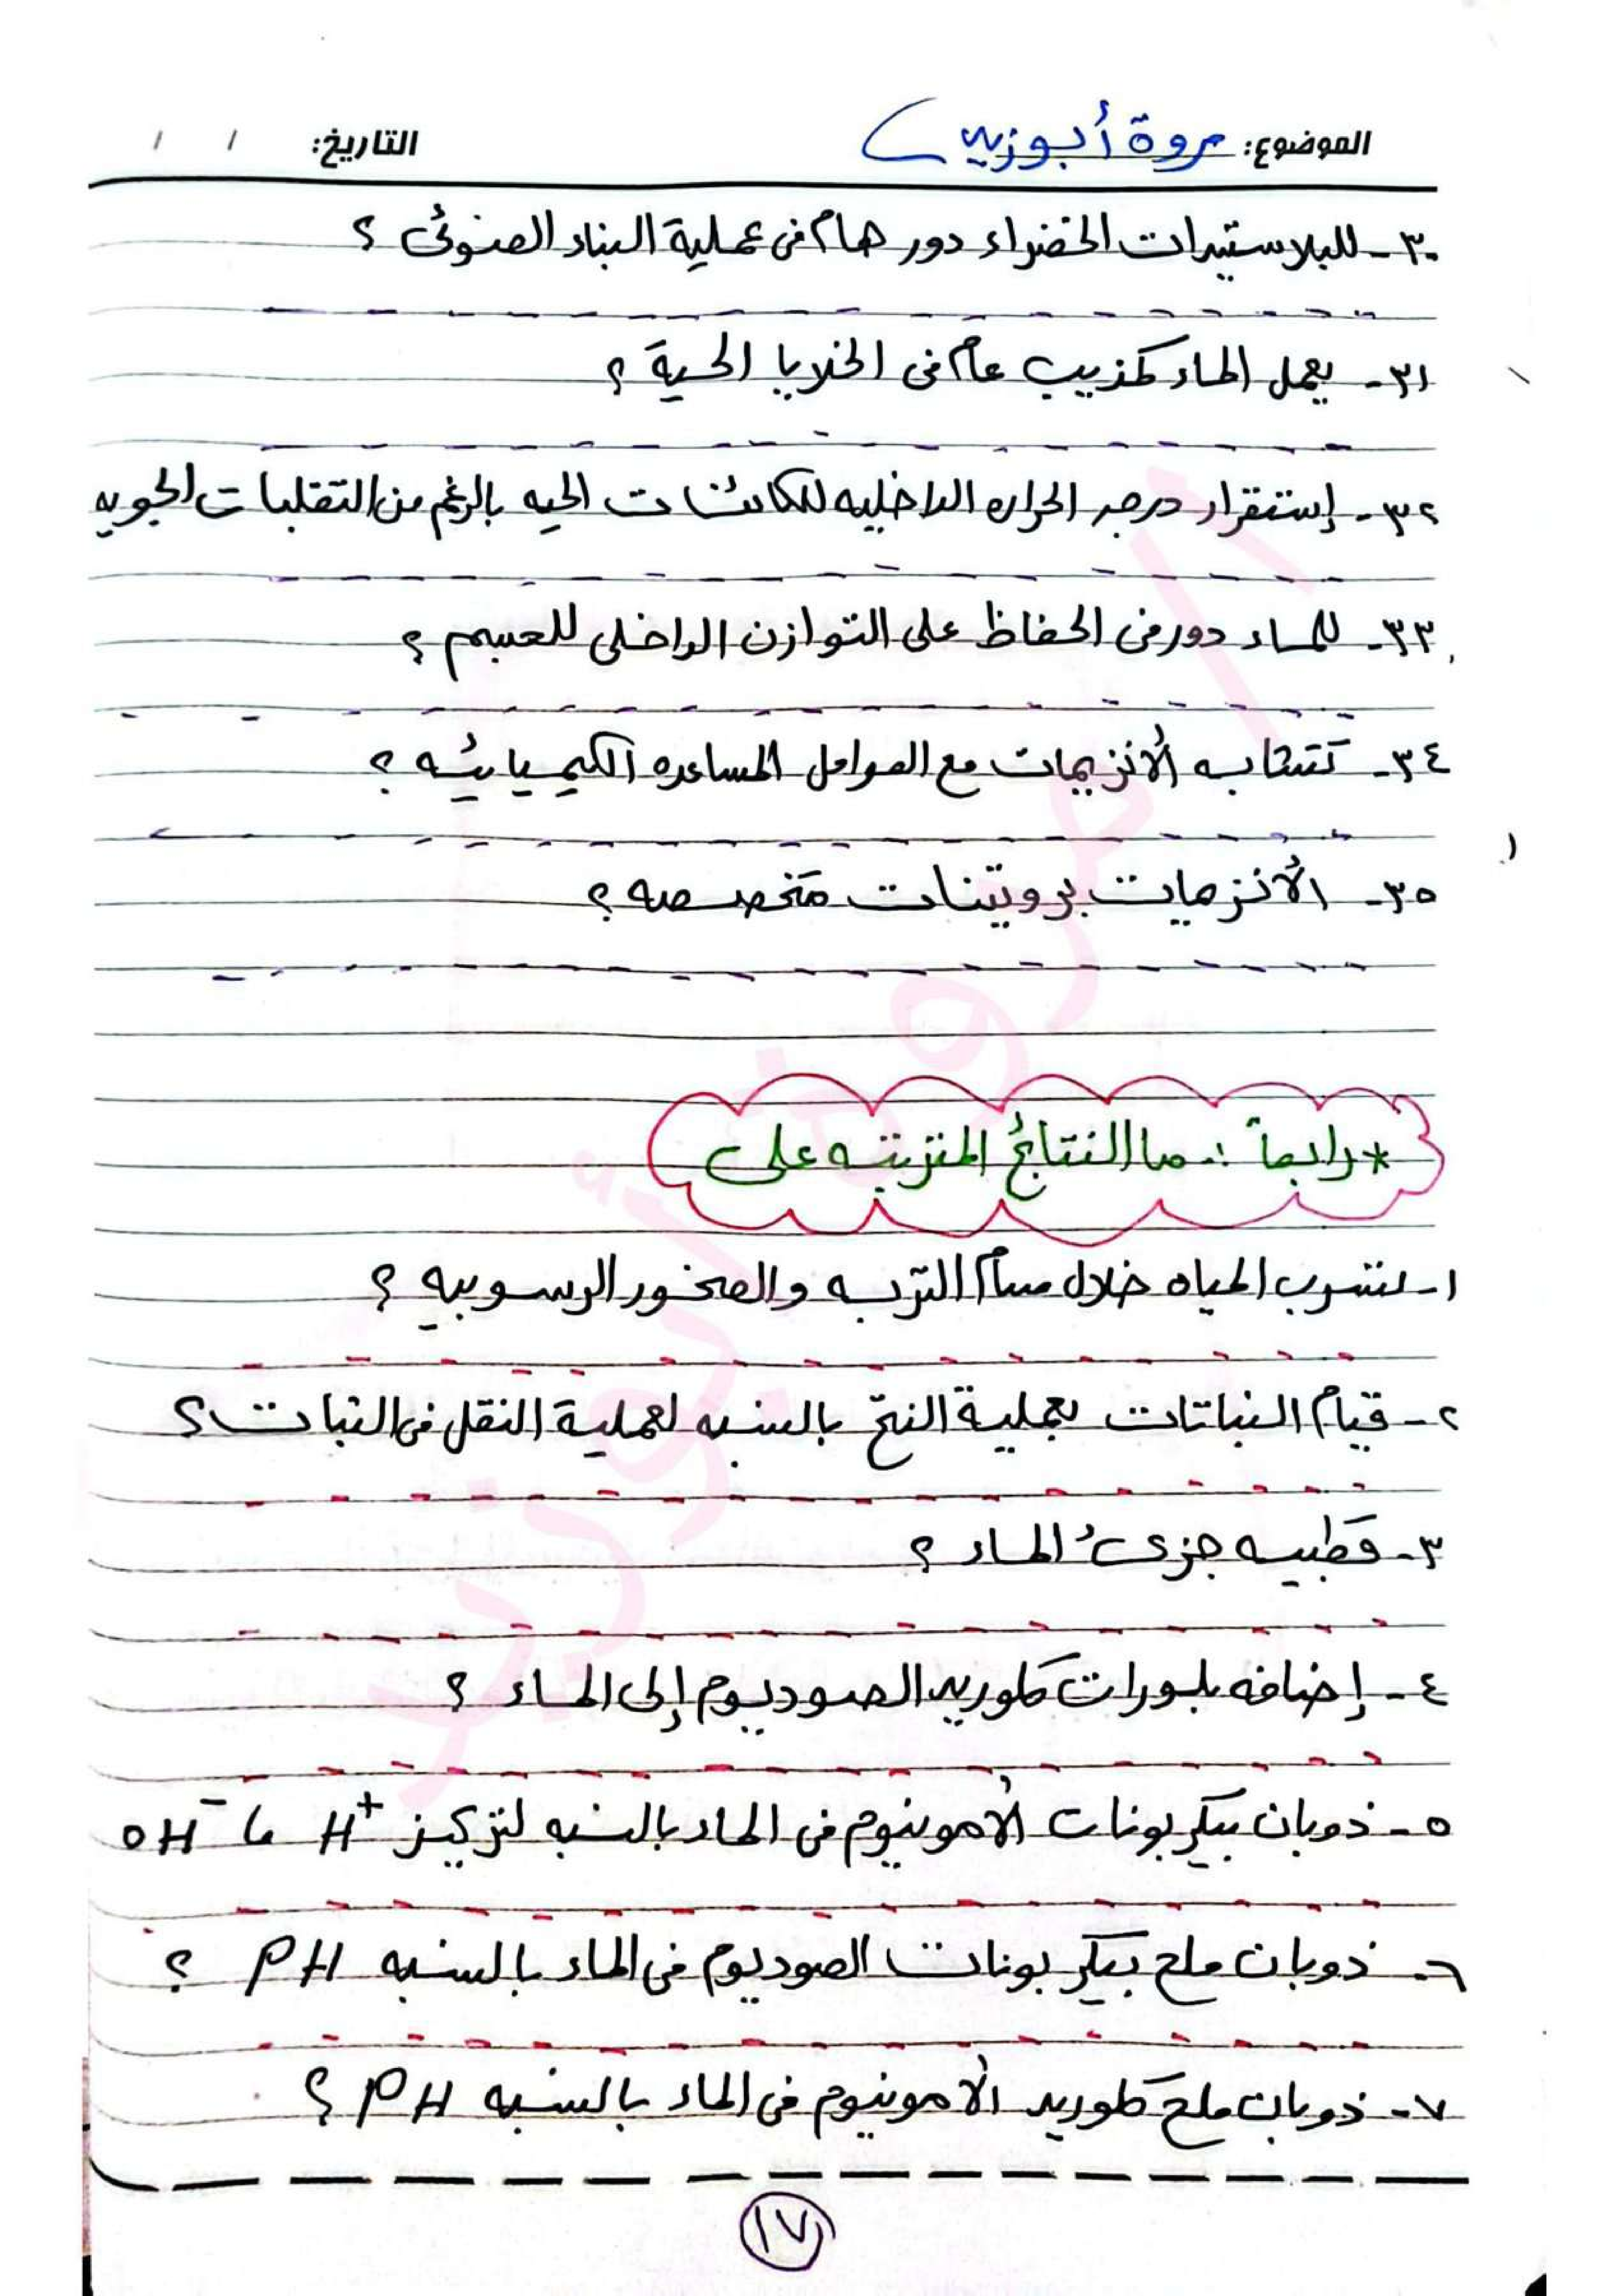 الموضوع: مروة أبوزيد التاريخ: / /
٣٠- للبلاستيدات الخضراء دور هام فى عملية البناء الضوئى ؟
٣١- يعمل الماء كمذيب عام فى الخلايا الحية ؟
٣٢- إستقرار درجه الحراره الداخليه للكائنات الحيه بالرغم من التقلبات الجويه
٣٣- للماء دور فى الحفاظ على التوازن الداخلى للجسم ؟
٣٤- تتشابه الأنزيمات مع العوامل المساعده الكيميائيه ؟
٣٥- الأنزيمات بروتينات متخصصه ؟
* رابعاً : ما النتائج المترتبه على
١- تسرب المياه خلال مسام التربه والصخور الرسوبيه ؟
٢- قيام النباتات بعملية النتح بالنسبه لعملية النقل فى النبات ؟
٣- قطبيه جزىء الماء ؟
٤- إضافه بلورات كلوريد الصوديوم إلى الماء ؟
٥- ذوبان بيكربونات الأمونيوم فى الماء بالنسبه لتركيز H⁺ ، OH⁻
٦- ذوبان ملح بيكربونات الصوديوم فى الماء بالنسبه PH ؟
٧- ذوبان ملح كلوريد الأمونيوم فى الماء بالنسبه PH ؟
١٧
أ/ مروة أبوزيد